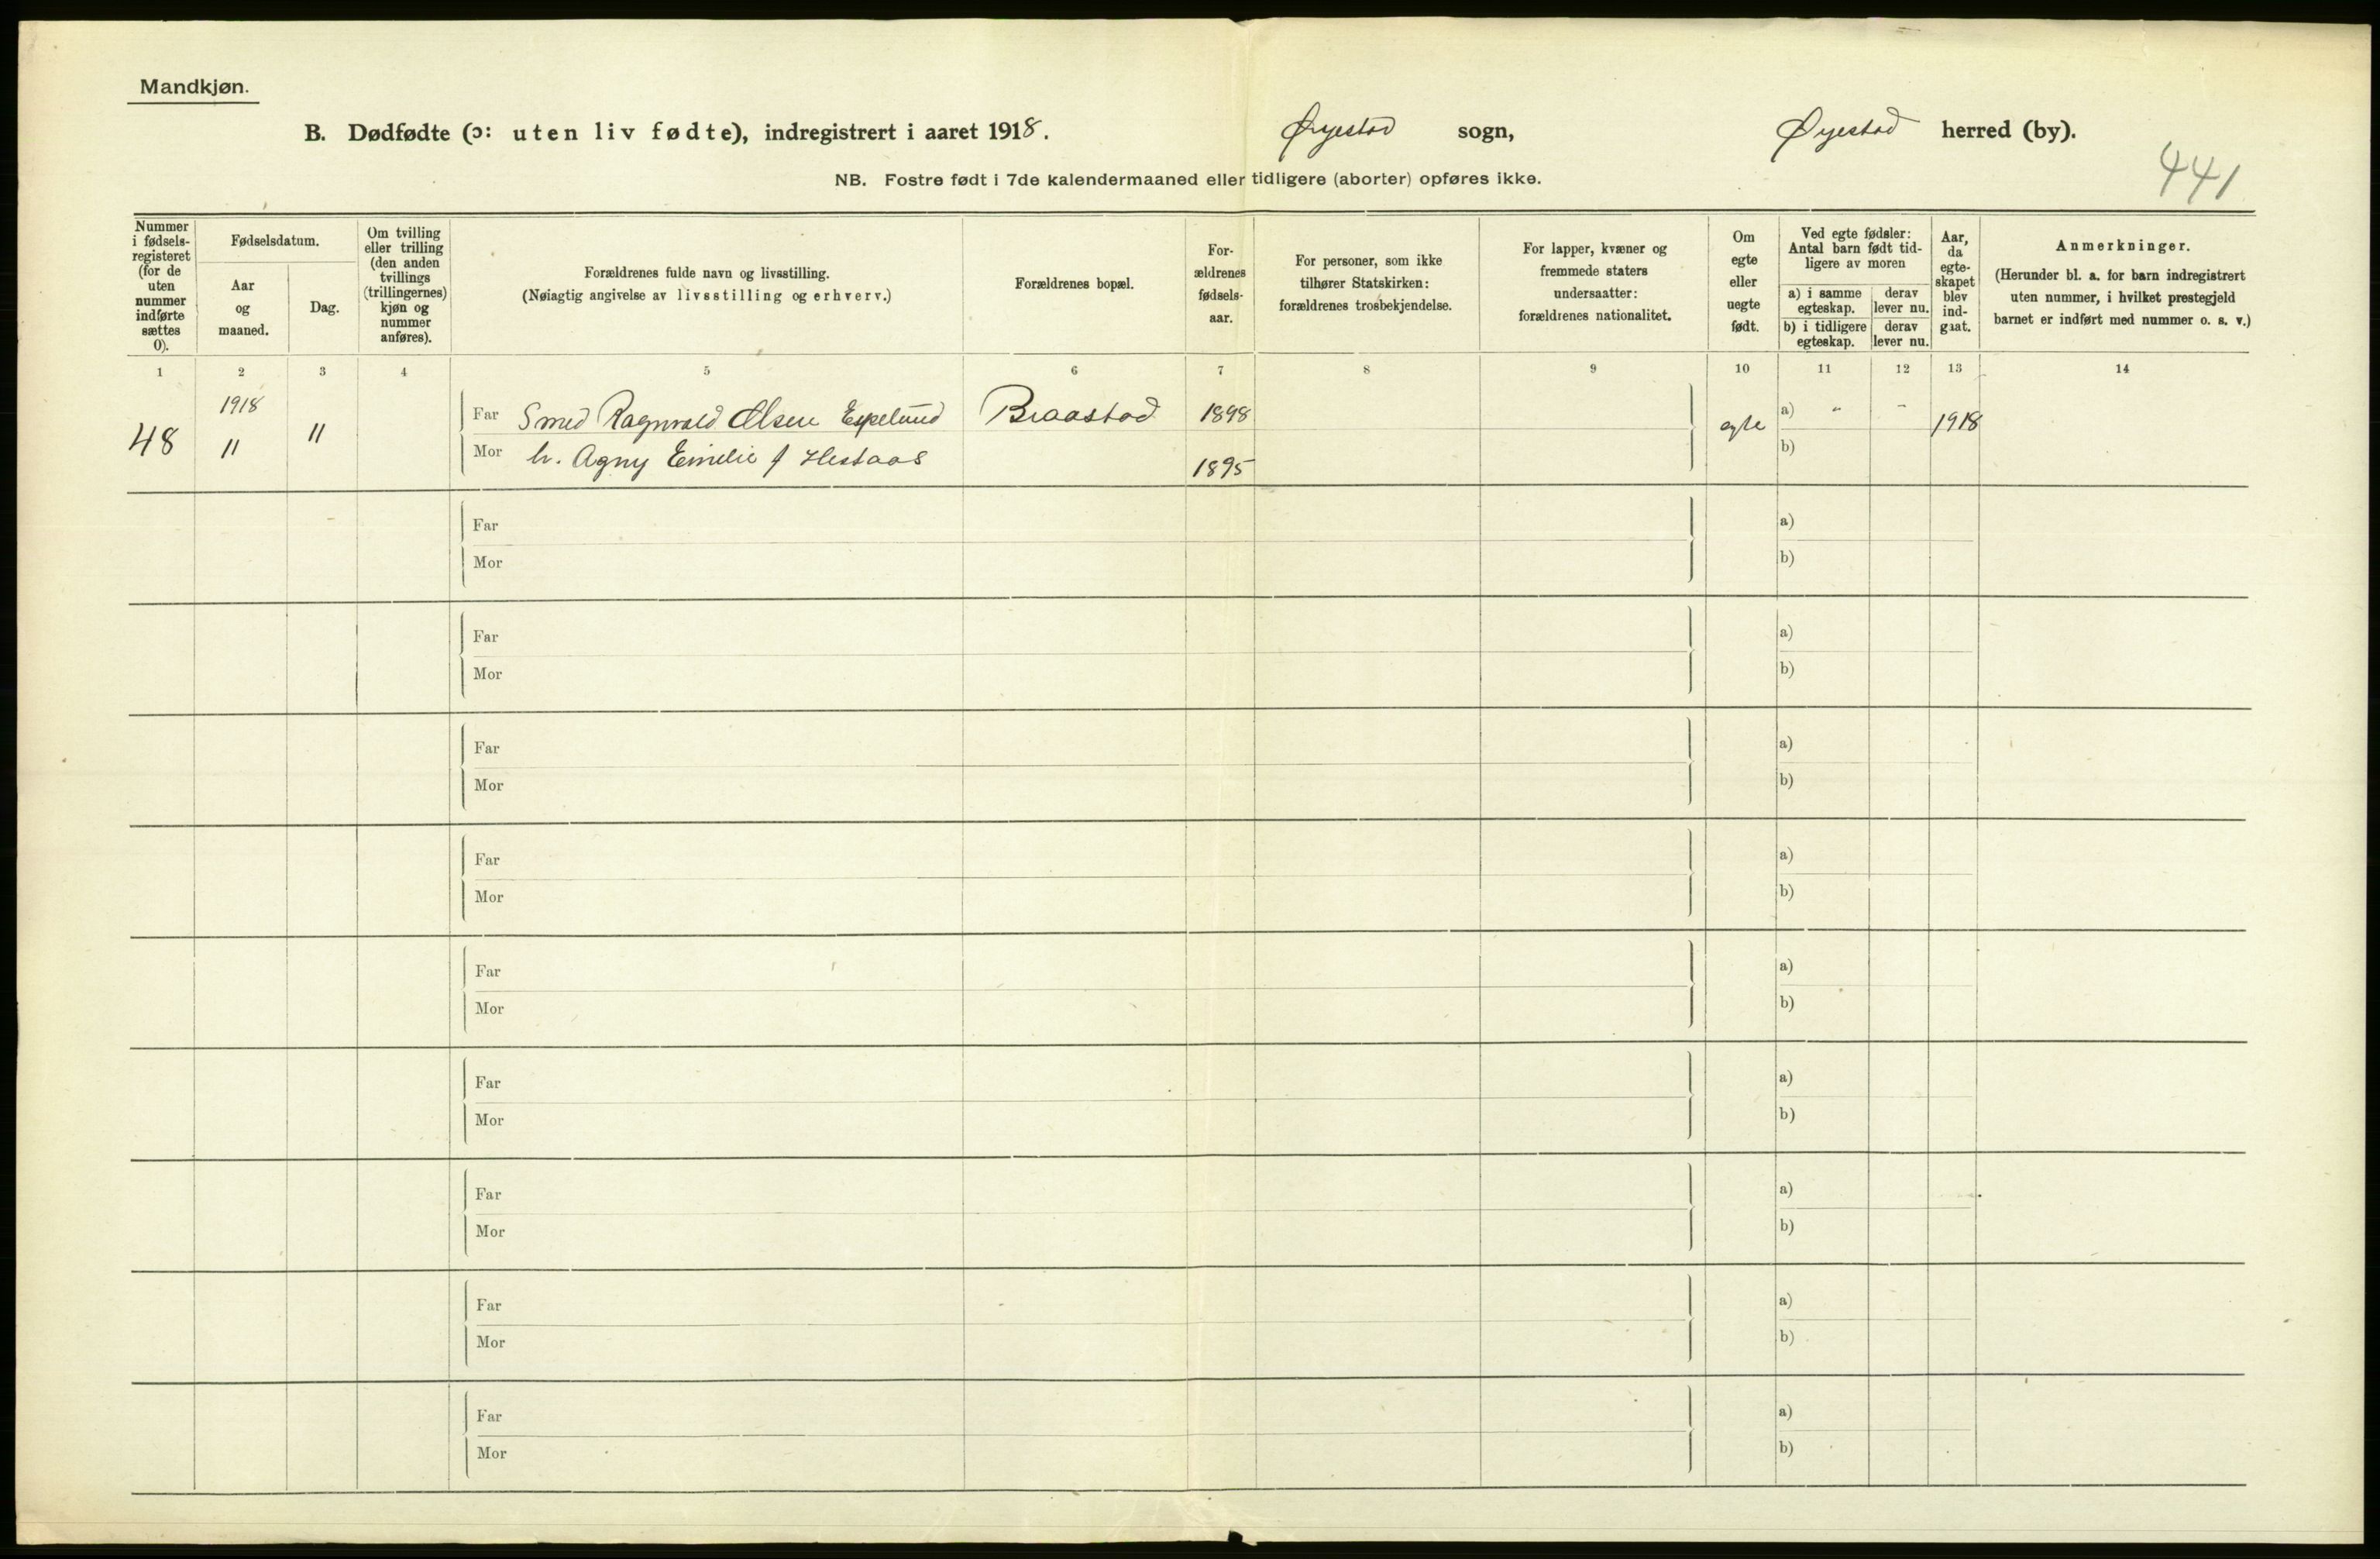 Mandkjøn.
B. Dødfødte (ɔ: uten liv fødte), indregistrert i aaret 1918. Øyestad sogn, Øyestad herred (by).
441
NB. Fostre født i 7de kalendermaaned eller tidligere (aborter) opføres ikke.
Nummer i fødsels-registeret (for de uten nummer indførte sættes 0).
Fødselsdatum.
Aar og maaned.
Dag.
Om tvilling eller trilling (den anden tvillings (trillingernes) kjøn og nummer anføres).
Forældrenes fulde navn og livsstilling.
(Nøiagtig angivelse av livsstilling og erhverv.)
Forældrenes bopæl.
For-ældrenes fødsels-aar.
For personer, som ikke tilhører Statskirken: forældrenes trosbekjendelse.
For lapper, kvæner og fremmede staters undersaatter: forældrenes nationalitet.
Om egte eller uegte født.
Ved egte fødsler: Antal barn født tid-ligere av moren
a) i samme egteskap. derav lever nu.
b) i tidligere egteskap. derav lever nu.
Aar, da egte-skapet blev ind-gaat.
Anmerkninger.
(Herunder bl. a. for barn indregistrert uten nummer, i hvilket prestegjeld barnet er indført med nummer o. s. v.)
1 2 3 4 5 6 7 8 9 10 11 12 13 14
48 1918 11 11
Far Smed Ragnvald Olsen Espelund Braastad 1898 egte a) " - 1918
Mor h. Agny Emelie f Hestaas 1895 b)
Far a)
Mor b)
Far a)
Mor b)
Far a)
Mor b)
Far a)
Mor b)
Far a)
Mor b)
Far a)
Mor b)
Far a)
Mor b)
Far a)
Mor b)
Far a)
Mor b)